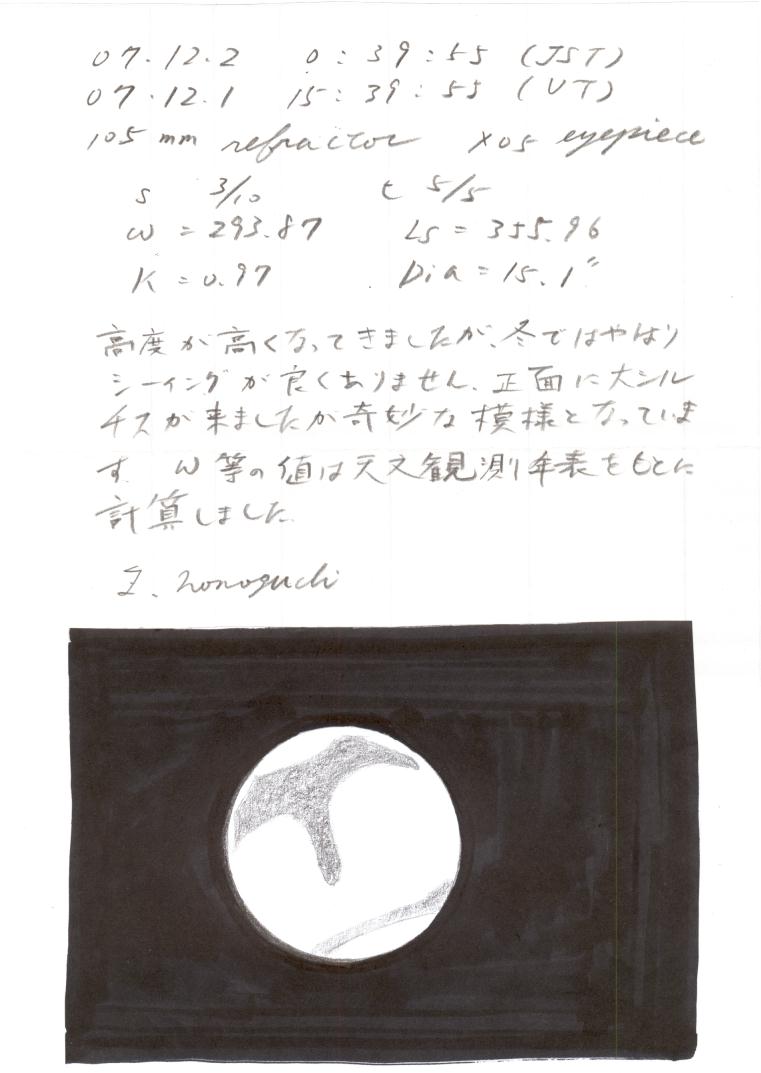 07.12.2 0:39:55 (JST)
07.12.1 15:39:55 (UT)
105 mm refractor XO5 eyepiece
s 3/10 t 5/5
ω = 293.87 Ls = 355.96
K = 0.97 Dia = 15.1"
高度が高くなってきましたが、冬ではやはり
シーイングが良くありません。正面に大シル
チスが来ましたが奇妙な模様となっていま
す。 ω等の値は天文観測年表をもとに
計算しました。
nonoguchi